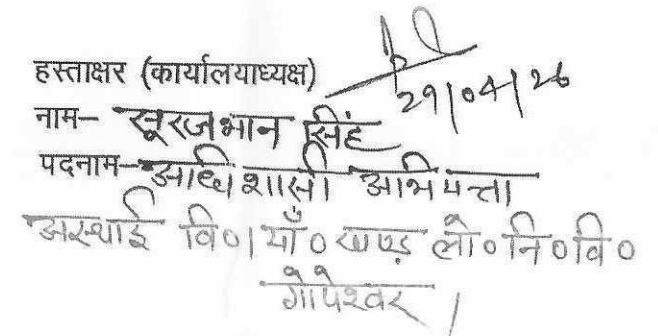 हस्ताक्षर (कार्यालयाध्यक्ष)
29/04/26
नाम- सूरजभान सिंह
पदनाम- अधिशासी अभियन्ता
अस्थाई वि०/याँ० खण्ड लो०नि०वि०
गोपेश्वर /